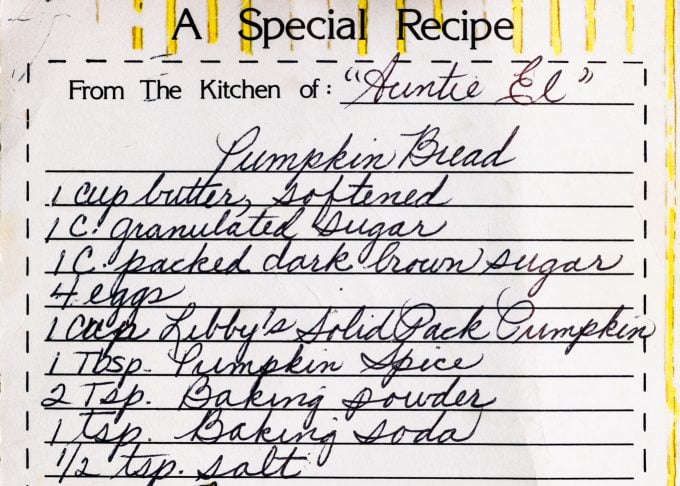 A Special Recipe
From The Kitchen of: "Auntie El"
Pumpkin Bread
1 cup butter, softened
1 C. granulated sugar
1 C. packed dark brown sugar
4 eggs
1 cup Libby's Solid Pack Pumpkin
1 Tbsp. Pumpkin Spice
2 Tsp. Baking powder
1 tsp. Baking soda
1/2 tsp. salt